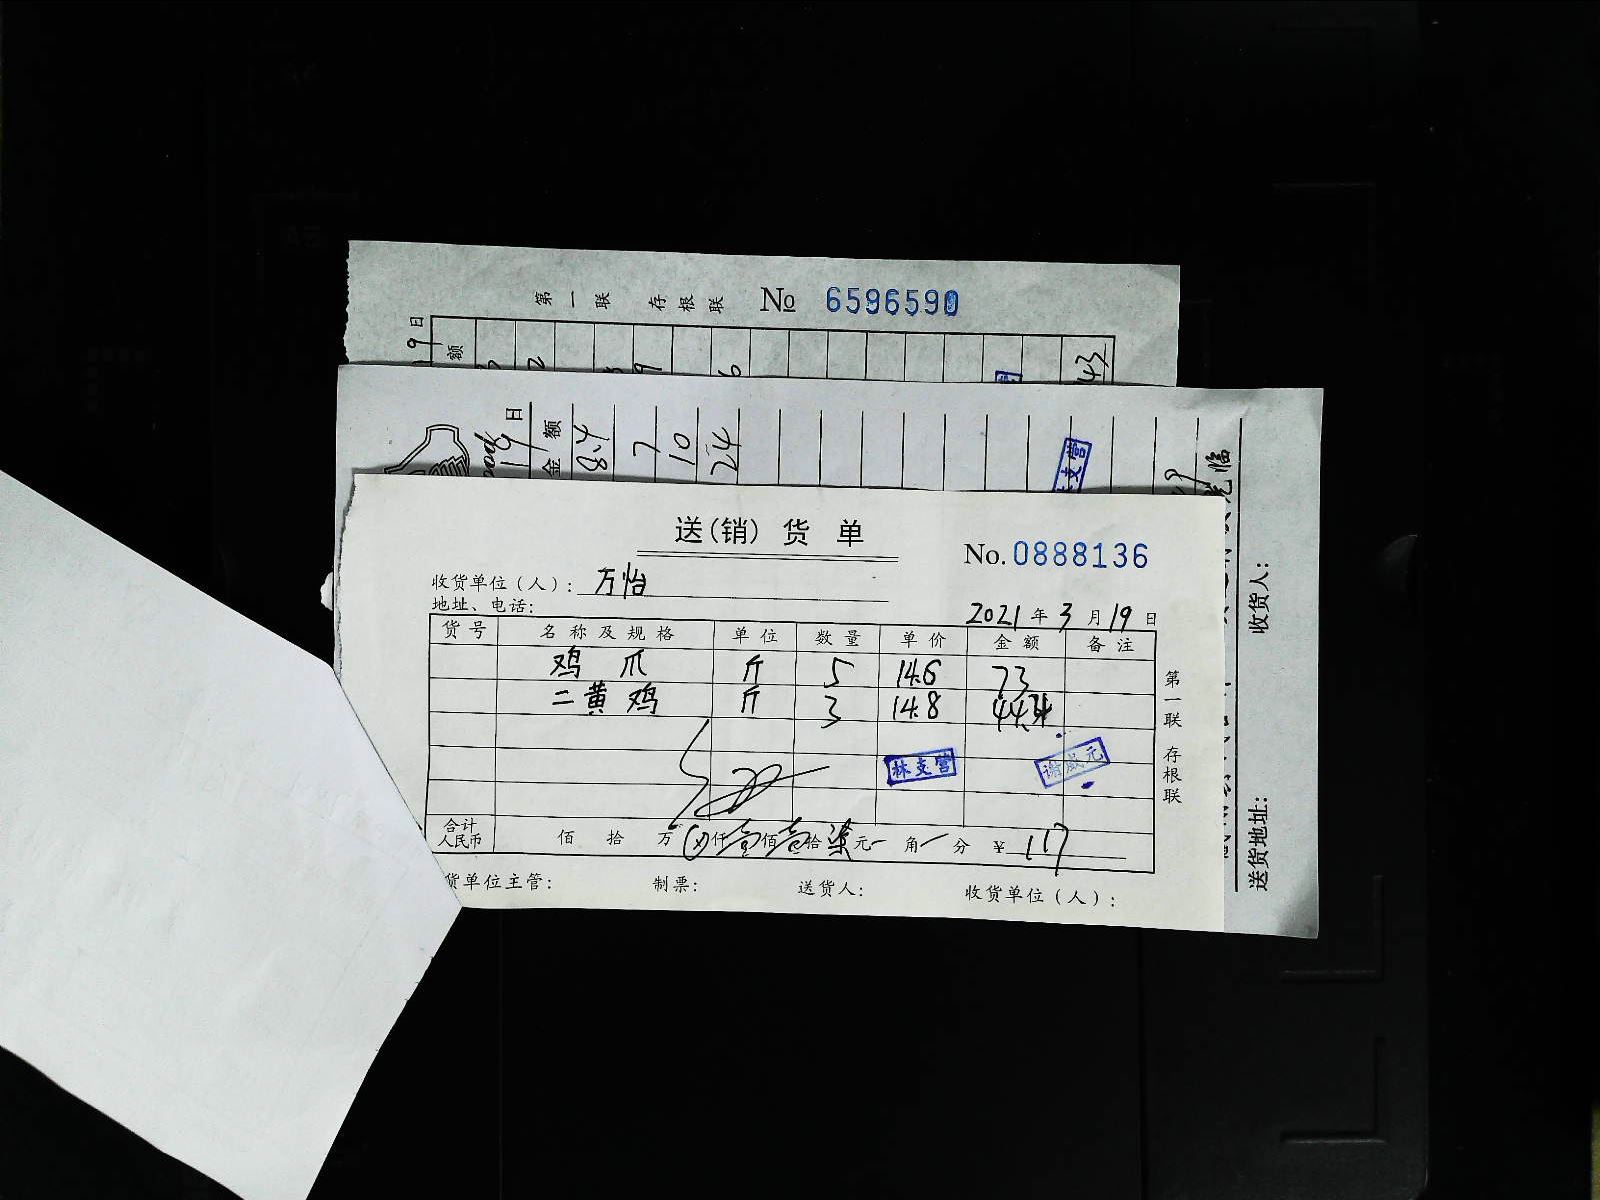 第一联 存根联 No 6596590
9日
额
43
19日
金额
8.4
7
10
24
支营
临
收货人:
送货地址:
送(销)货单
No.0888136
收货单位(人): 万怡
地址、电话:
2021年3月19日
货号 名称及规格 单位 数量 单价 金额 备注
鸡爪 斤 5 14.6 73
二黄鸡 斤 3 14.8
林支营
谢威元
合计人民币 佰 拾 万 仟壹佰壹拾柒元 角 分 ¥ 117
货单位主管: 制票: 送货人: 收货单位(人):
第一联 存根联